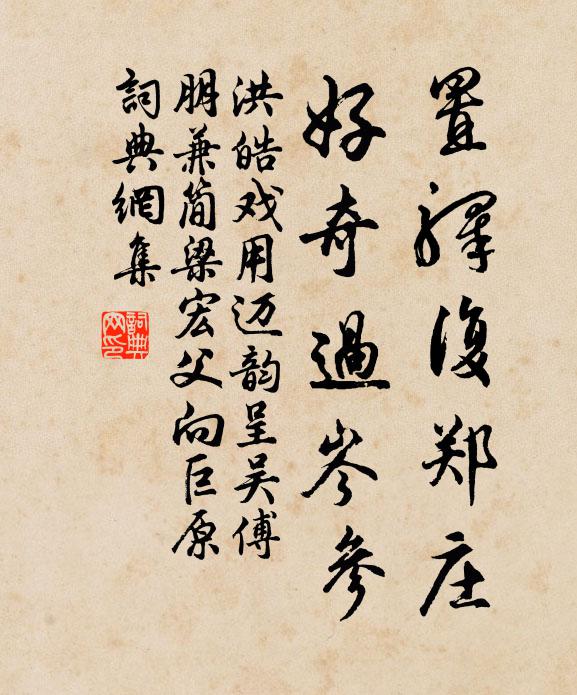 置驛復郑庄
好奇過岑參
洪皓戏用迈韵呈吴傅
朋兼简梁宏父向巨原
詞典網集
詞典
網印